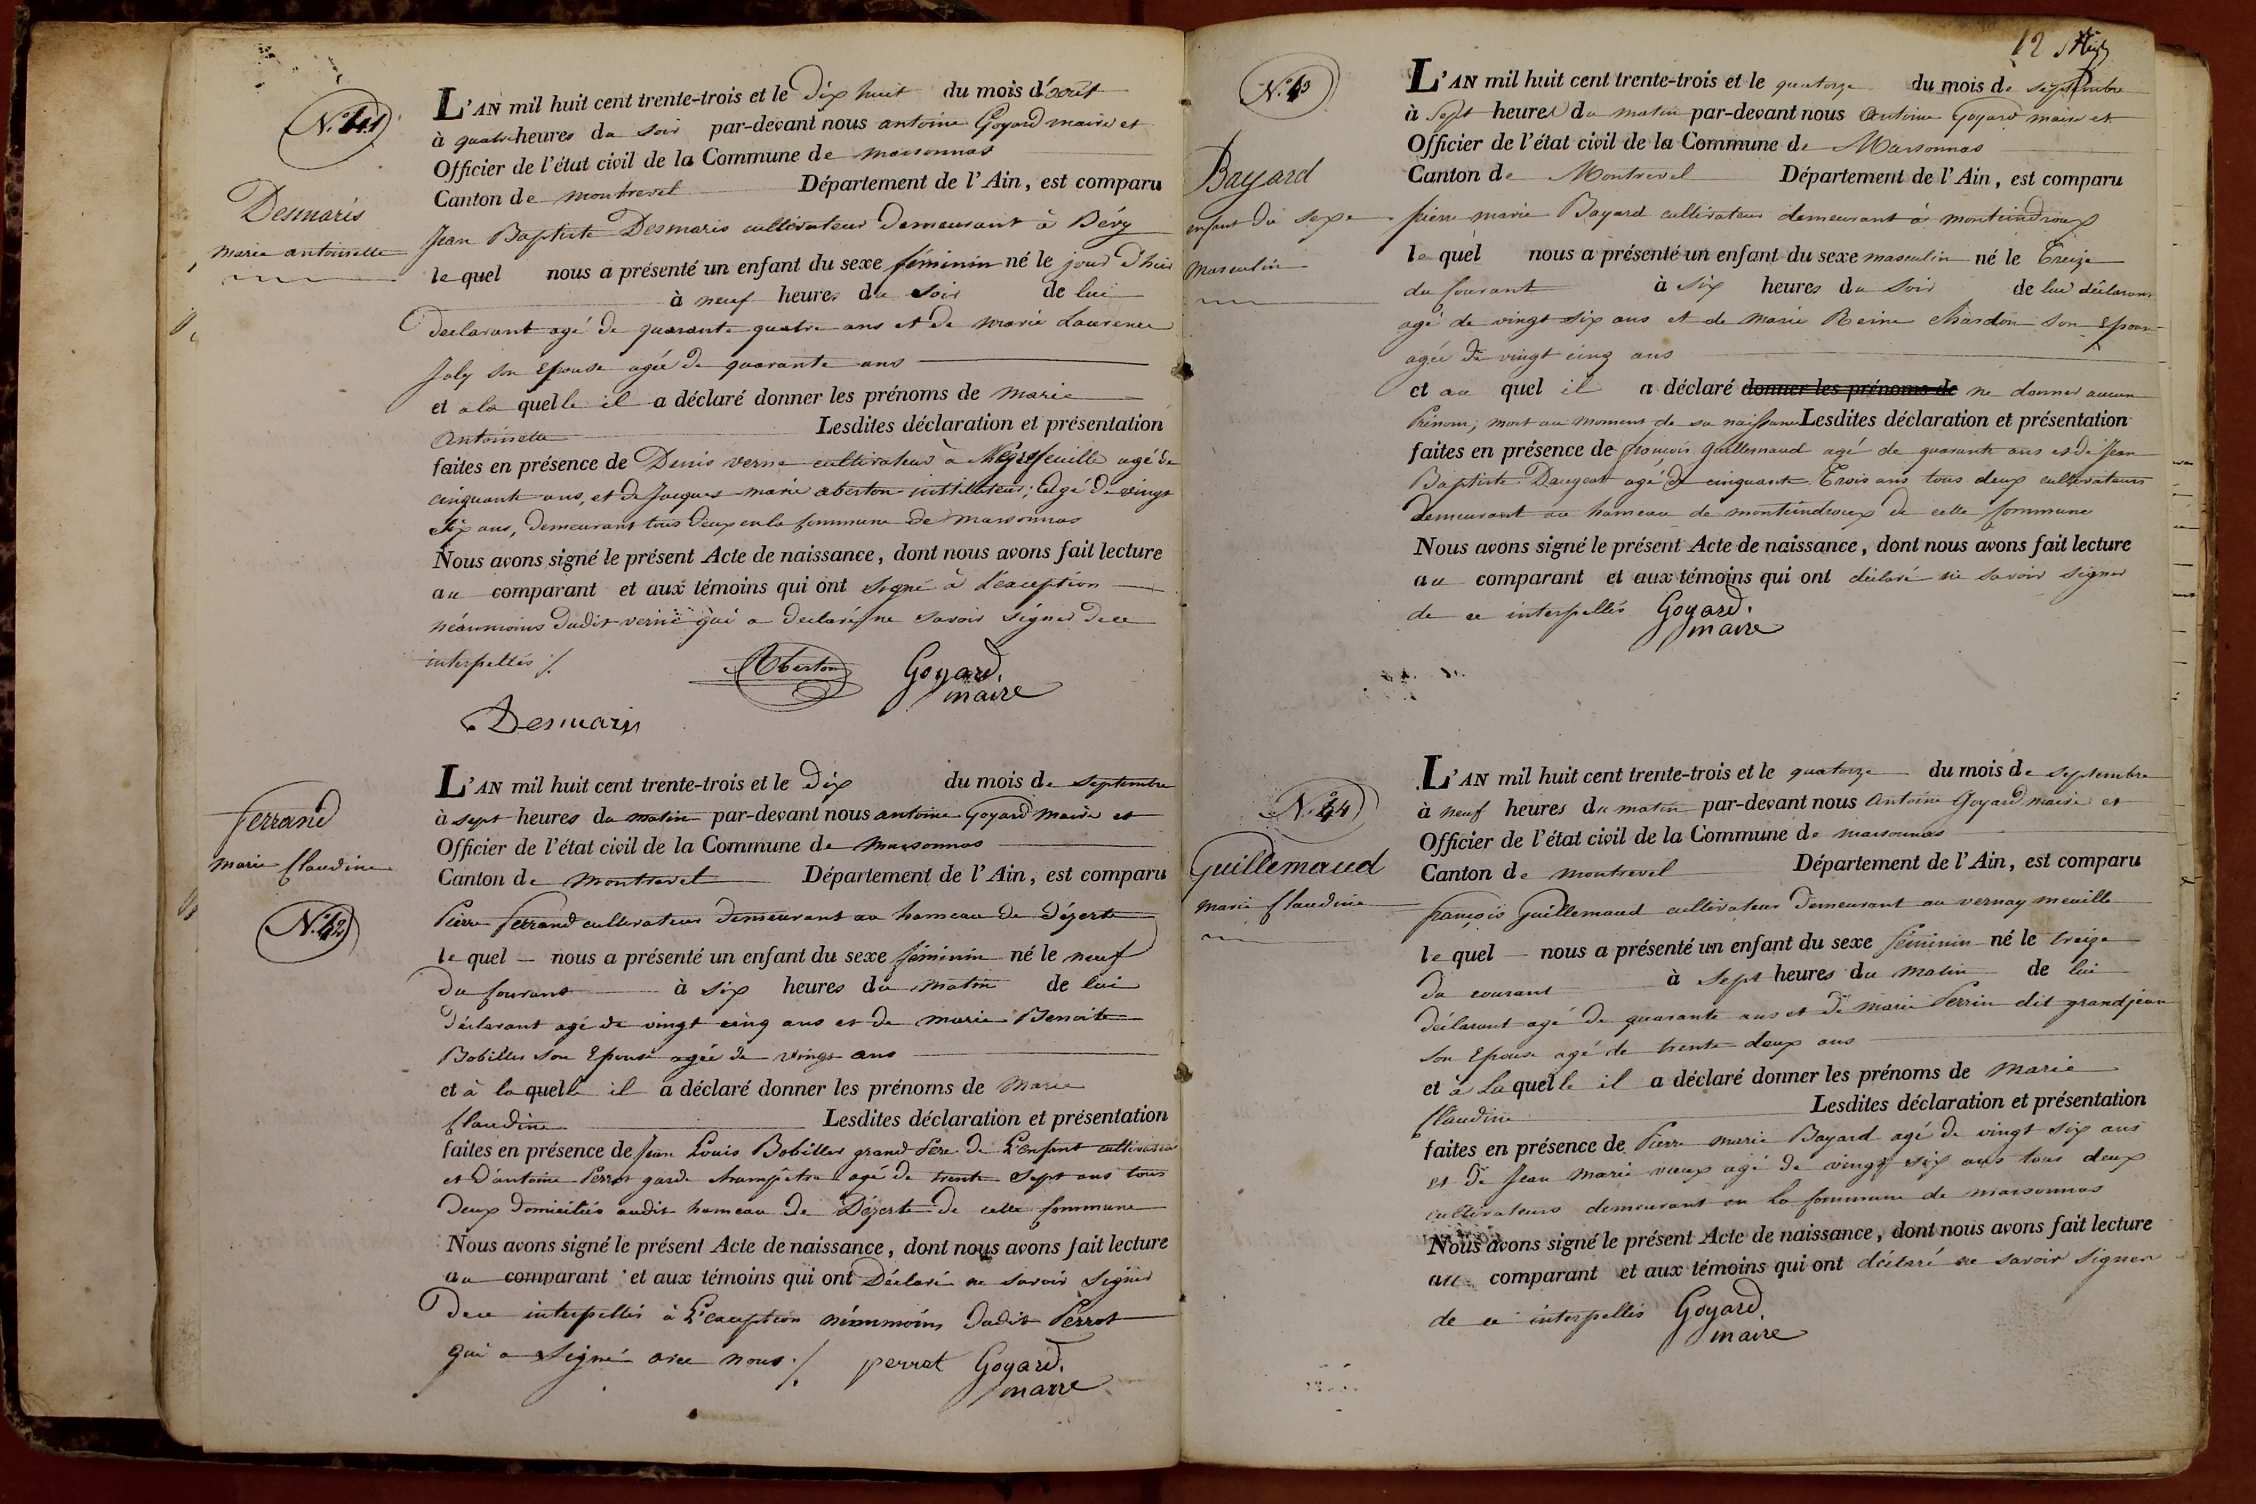 N.° 41
Desmaris
marie antoinette
L'AN mil huit cent trente-trois et le dix huit du mois d'août
à quatre heures du soir par-devant nous antoine Goyard maire et
Officier de l'état civil de la Commune de marsonnas
Canton de montrevel Département de l'Ain, est comparu
Jean Baptiste Desmaris cultivateur demeurant à Bévy
le quel nous a présenté un enfant du sexe féminin né le jour d'hui
à neuf heures du soir de lui
declarant agé de quarante quatre ans et de marie Laurence
Joly son Epouse agée de quarante ans
et a la quelle il a déclaré donner les prénoms de marie
antoinette Lesdites déclaration et présentation
faites en présence de Denis verne cultivateur à Négrefeuille agé de
cinquante ans, et de Jacques marie aberton instituteur, agé de vingt
six ans, demeurant tous deux en la Commune de marsonnas
Nous avons signé le présent Acte de naissance, dont nous avons fait lecture
au comparant et aux témoins qui ont signé à l'exception
néanmoins dudit verne qui a declaré ne savoir signer de ce
interpellés ./.
Aberton Goyard.
maire
Desmaris
Ferrand
marie Claudine
N.° 42
L'AN mil huit cent trente-trois et le dix du mois de septembre
à sept heures du matin par-devant nous antoine Goyard maire et
Officier de l'état civil de la Commune de marsonnas
Canton de montrevel Département de l'Ain, est comparu
Pierre Ferrand cultivateur demeurant au hameau de dézerte
le quel nous a présenté un enfant du sexe féminin né le neuf
du Courant à six heures du matin de lui
déclarant agé de vingt cinq ans et de marie Benoite
Bobillet son Epouse agée de vingt ans
et à la quelle il a déclaré donner les prénoms de Marie
Claudine Lesdites déclaration et présentation
faites en présence de Jean Louis Bobillet grand Père de L'enfant cultivateur
et d'antoine Perrot garde champêtre agé de trente sept ans tous
deux domiciliés audit hameau de Dézerte de cette Commune
Nous avons signé le présent Acte de naissance, dont nous avons fait lecture
au comparant et aux témoins qui ont Déclaré ne savoir signer
de ce interpellés à L'exception néanmoins dudit Perrot
qui a signé avec nous ./. perrot Goyard.
maire
12
N.° 43
Bayard
enfant du sexe
masculin
L'AN mil huit cent trente-trois et le quatorze du mois de septembre
à sept heures du matin par-devant nous Antoine Goyard maire et
Officier de l'état civil de la Commune de Marsonnas
Canton de Montrevel Département de l'Ain, est comparu
pierre marie Bayard cultivateur demeurant à montcindroux
le quel nous a présenté un enfant du sexe masculin né le treize
du Courant à six heures du soir de lui déclarant
agé de vingt six ans et de marie Reine chardon son Epouse
agée de vingt cinq ans
et au quel il a déclaré donner les prénoms de ne donner aucun
Prénom; mort au moment de sa naissance Lesdites déclaration et présentation
faites en présence de françois guillemaud agé de quarante ans et de Jean
Baptiste Daujeat agé de cinquante Trois ans tous deux cultivateurs
demeurant au hameau de montcindroux de cette Commune
Nous avons signé le présent Acte de naissance, dont nous avons fait lecture
au comparant et aux témoins qui ont déclaré ne savoir signer
de ce interpellés Goyard.
maire
N.° 44
Guillemaud
marie Claudine
L'AN mil huit cent trente-trois et le quatorze du mois de septembre
à neuf heures du matin par-devant nous Antoine Goyard maire et
Officier de l'état civil de la Commune de marsonnas
Canton de montrevel Département de l'Ain, est comparu
françois Guillemaud cultivateur demeurant au vernay meuille
le quel nous a présenté un enfant du sexe féminin né le treize
du courant à sept heures du matin de lui
déclarant agé de quarante ans et de marie Perrin dit grandjean
son Epouse agé de trente deux ans
et à La quelle il a déclaré donner les prénoms de marie
Claudine Lesdites déclaration et présentation
faites en présence de Pierre marie Bayard agé de vingt six ans
et de Jean marie vieux agé de vingt six ans tous deux
cultivateurs demeurant en La Commune de marsonnas
Nous avons signé le présent Acte de naissance, dont nous avons fait lecture
au comparant et aux témoins qui ont déclaré ne savoir signer
de ce interpellés Goyard.
maire